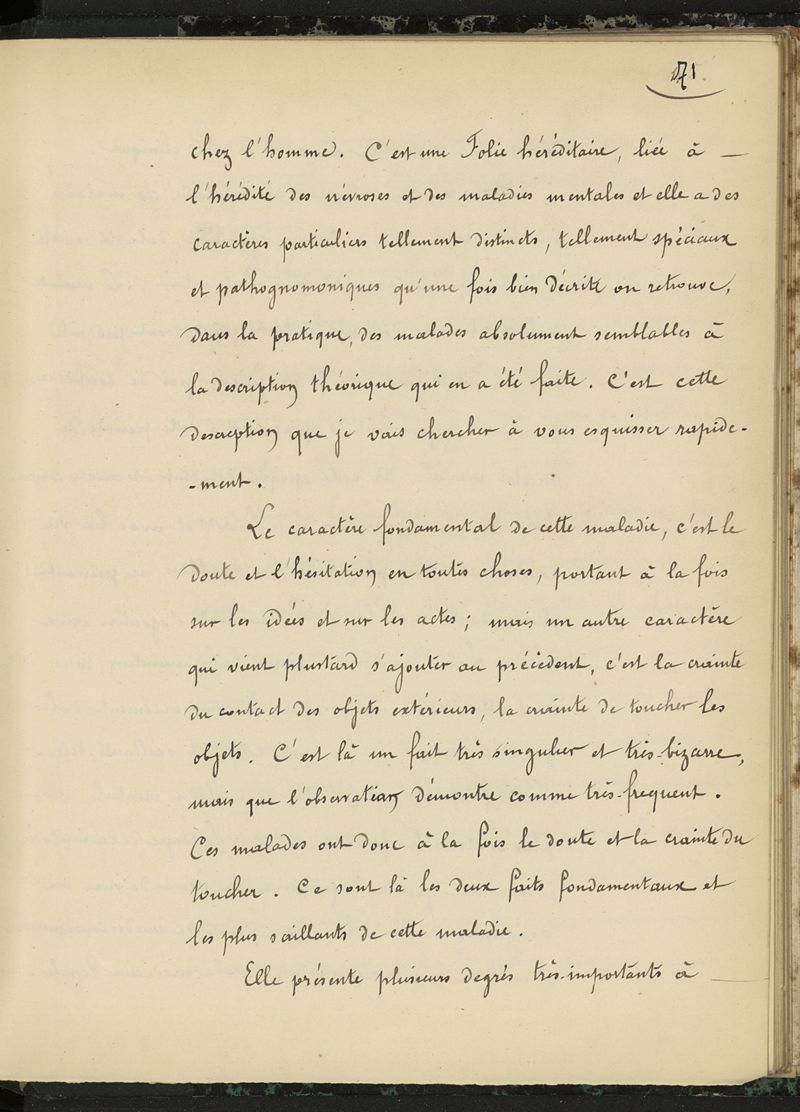 71
chez l'homme. C'est une Folie héréditaire, liée à —
l'hérédité des névroses et des maladies mentales et elle a des
caractères particuliers tellement distincts, tellement spéciaux
et pathognomoniques qu'une fois bien décrite on retrouve,
dans la pratique, des malades absolument semblables à
la description théorique qui en a été faite. C'est cette
description que je vais chercher à vous esquisser rapide-
-ment.
Le caractère fondamental de cette maladie, c'est le
doute et l'hésitation en toutes choses, portant à la fois
sur les idées et sur les actes ; mais un autre caractère
qui vient plustard s'ajouter au précédent, c'est la crainte
du contact des objets extérieurs, la crainte de toucher les
objets. C'est là un fait très singulier et très-bizarre,
mais que l'observation démontre comme très-frequent.
Ces malades ont donc à la fois le doute et la crainte du
toucher. Ce sont là les deux faits fondamentaux et
les plus saillants de cette maladie.
Elle présente plusieurs degrés très-importants à —